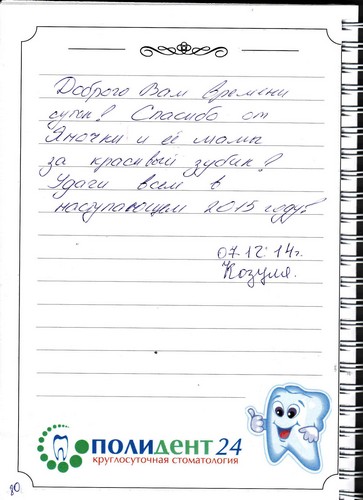 Доброго Вам времени
суток! Спасибо от
Яночки и её мамы
за красивый зубик!
Удачи всем в
наступающем 2015 году!
07.12.14г.
Козуля.
ПОЛИДЕНТ 24
круглосуточная стоматология
80